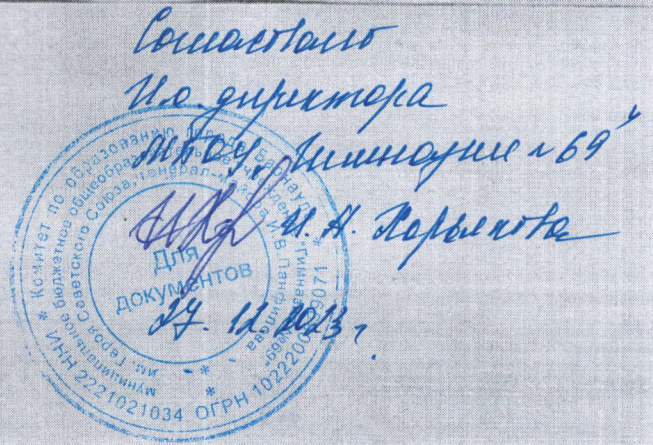 Согласовано
И.о. директора
МБОУ "Гимназия №69"
И. А. Хорьякова
27. 12. 2023 г.
* Комитет по образованию города Барнаула
муниципальное бюджетное общеобразовательное учреждение "Гимназия №69"
им. Героя Советского Союза, генерал-майора И.В. Панфилова
* ИНН 2221021034 ОГРН
Для
документов